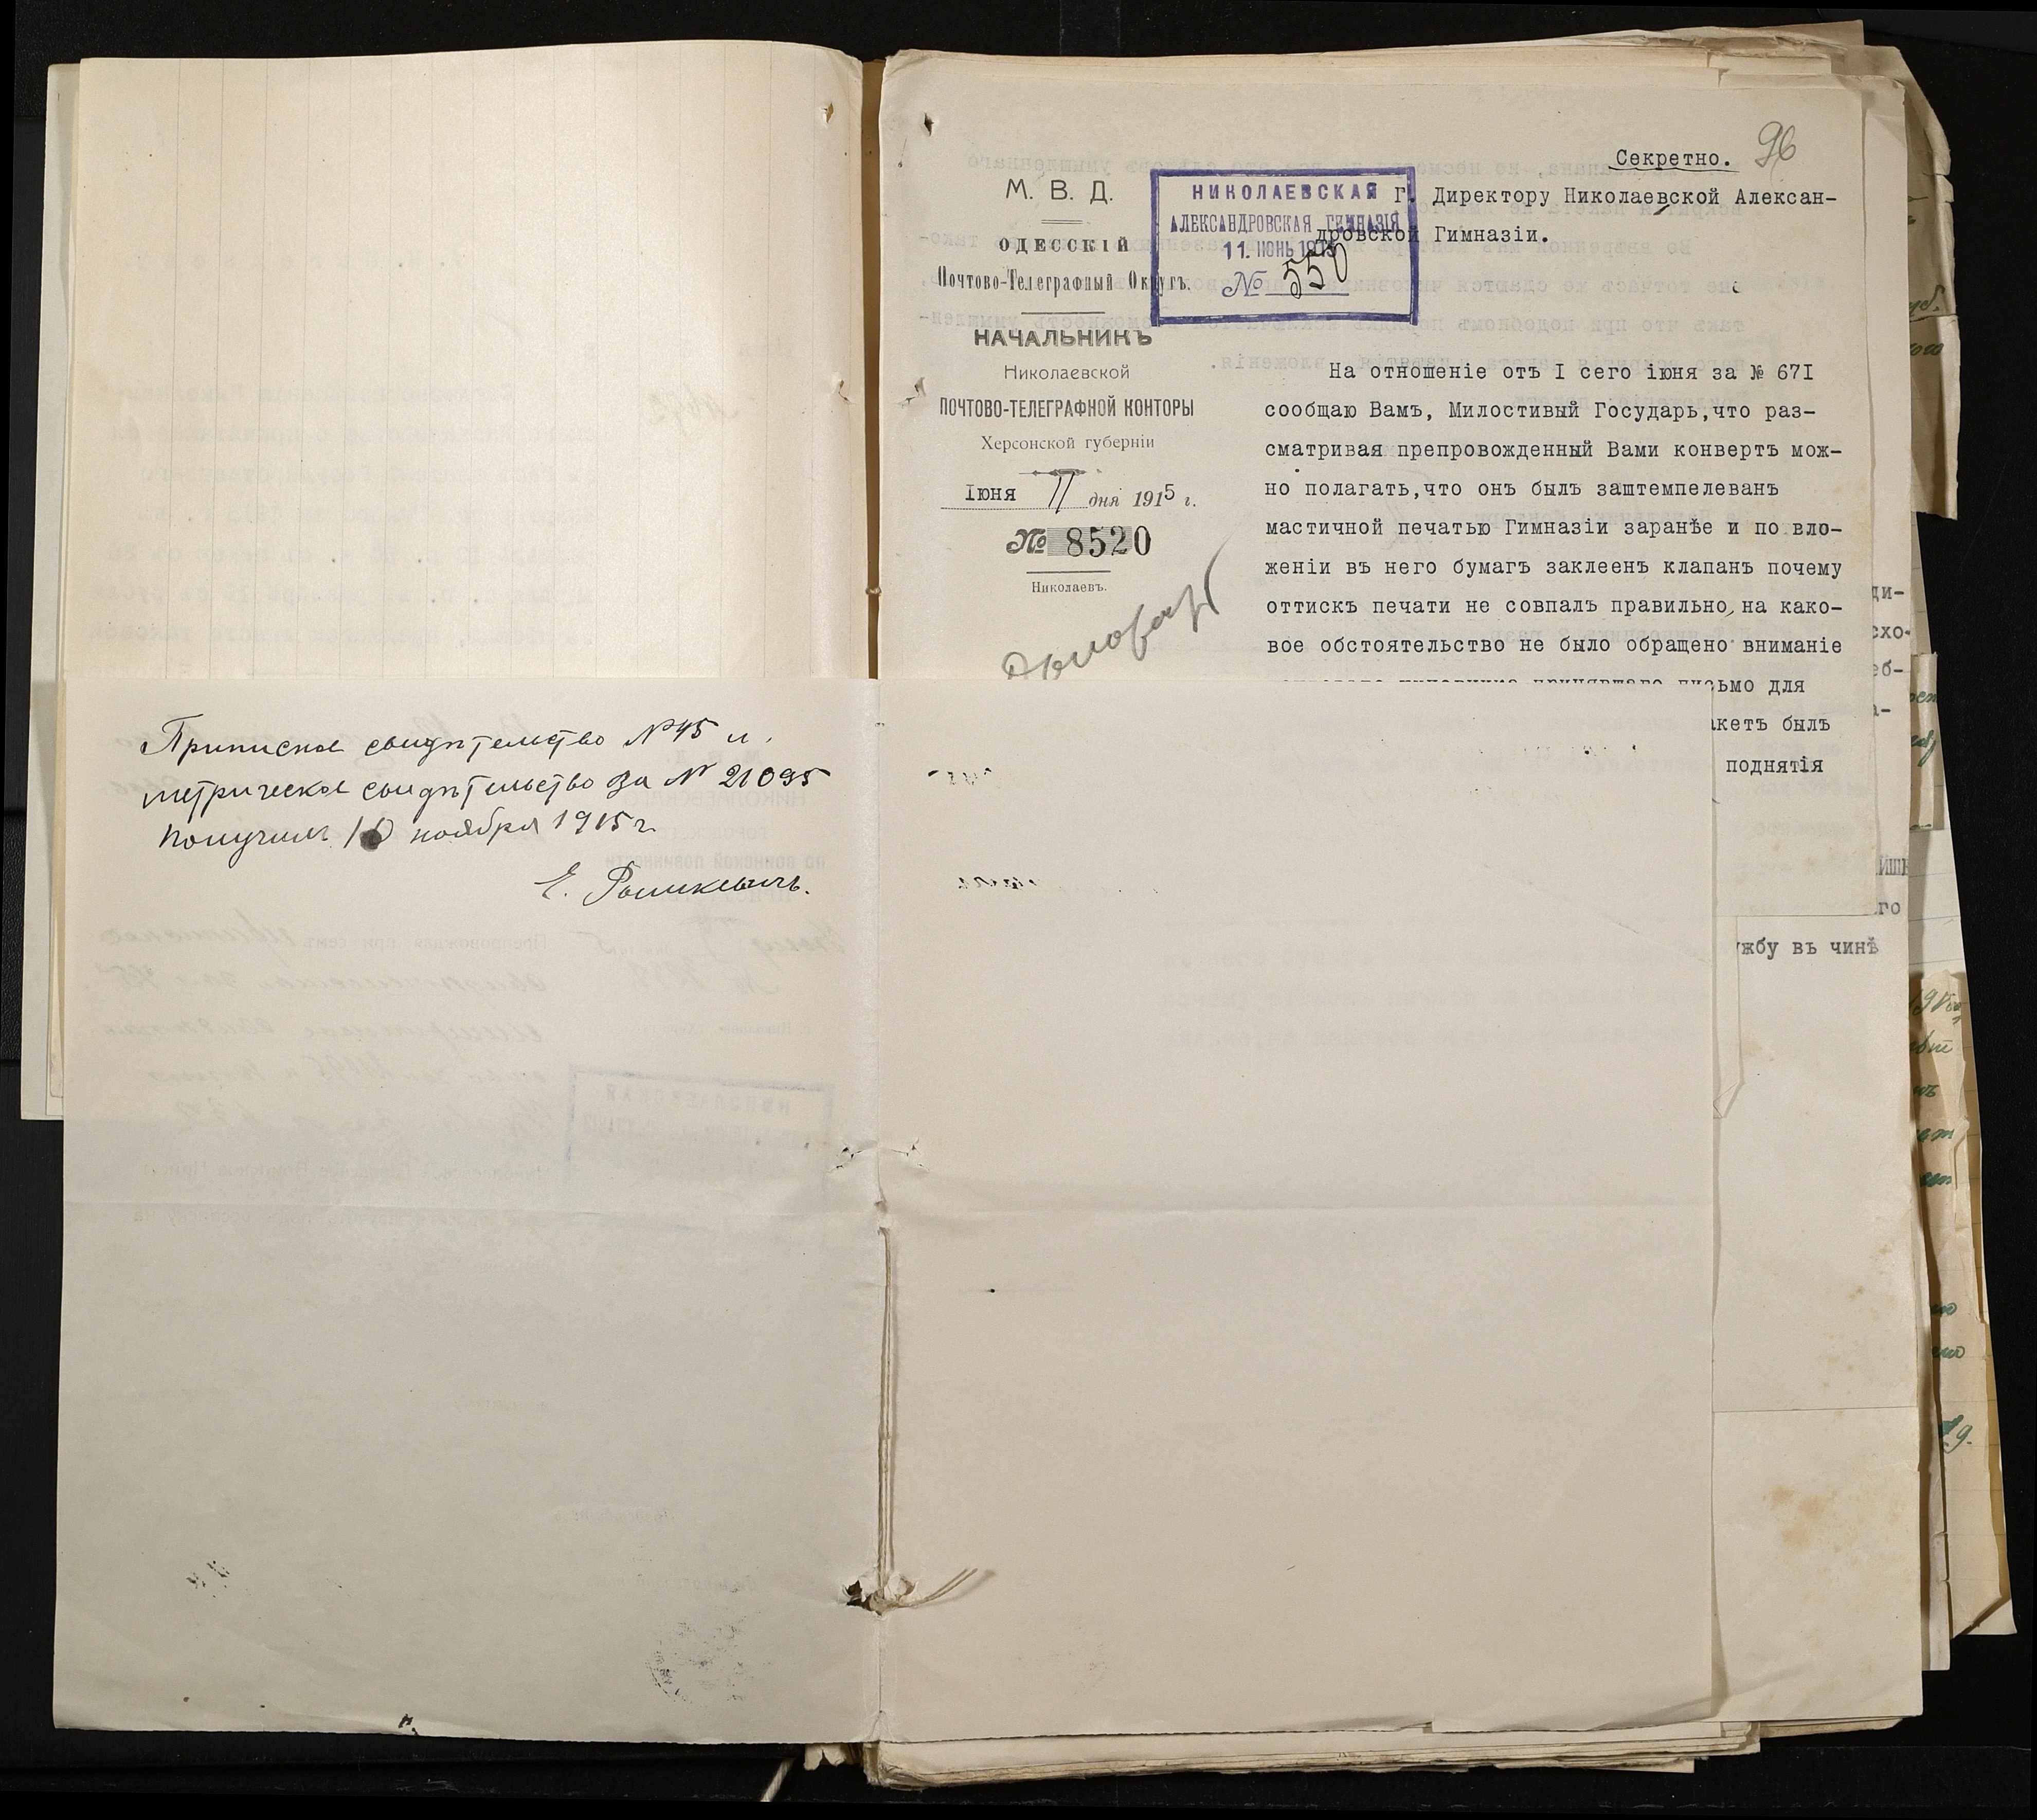 Приписное свидѣтельство № 45 и
метрическое свидѣтельство за № 21095
получилъ 10 ноября 1915 г.
Е. Рашкевичъ.
Секретно. 96
М. В. Д.
ОДЕССКІЙ
Почтово-Телеграфный Округъ.
НАЧАЛЬНИКЪ
Николаевской
ПОЧТОВО-ТЕЛЕГРАФНОЙ КОНТОРЫ
Херсонской губерніи
Iюня 11 дня 1915 г.
№ 8520
Николаевъ.
НИКОЛАЕВСКАЯ
АЛЕКСАНДРОВСКАЯ ГИМНАЗІЯ
11. ІЮНЬ 1915
№ 550
Г. Директору Николаевской Алексан-
дровской Гимназіи.
На отношеніе отъ I сего іюня за № 67I
сообщаю Вамъ, Милостивый Государь,что раз-
сматривая препровожденный Вами конвертъ мож-
но полагать,что онъ былъ заштемпелеванъ
мастичной печатью Гимназіи заранѣе и по вло-
женіи въ него бумагъ заклеенъ клапанъ почему
оттискъ печати не совпалъ правильно, на како-
вое обстоятельство не было обращено вниманіе
принявшаго письмо для
акетъ былъ
поднятія
ужбу въ чинѣ